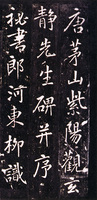 唐茅山紫陽觀玄
静先生碑并序
秘書郎河東柳識